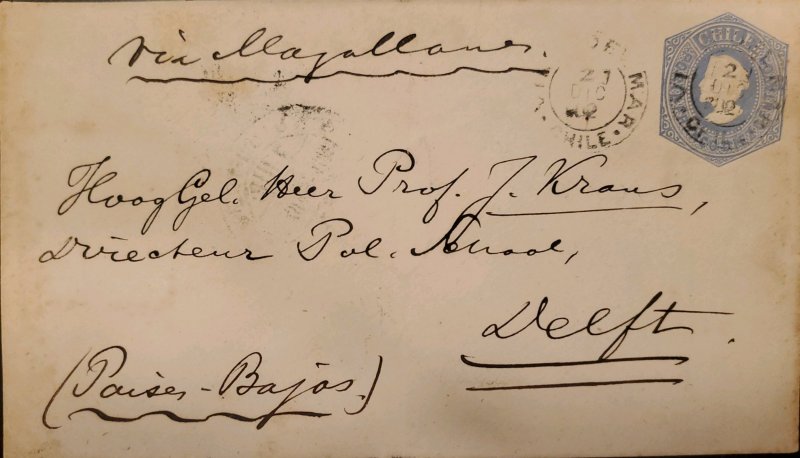 via Magallanes.
DEL MAR
CHILE
HoogGel. Heer Prof. J. Kraus,
Directeur Pol. School,
Delft.
(Paises-Bajos.)